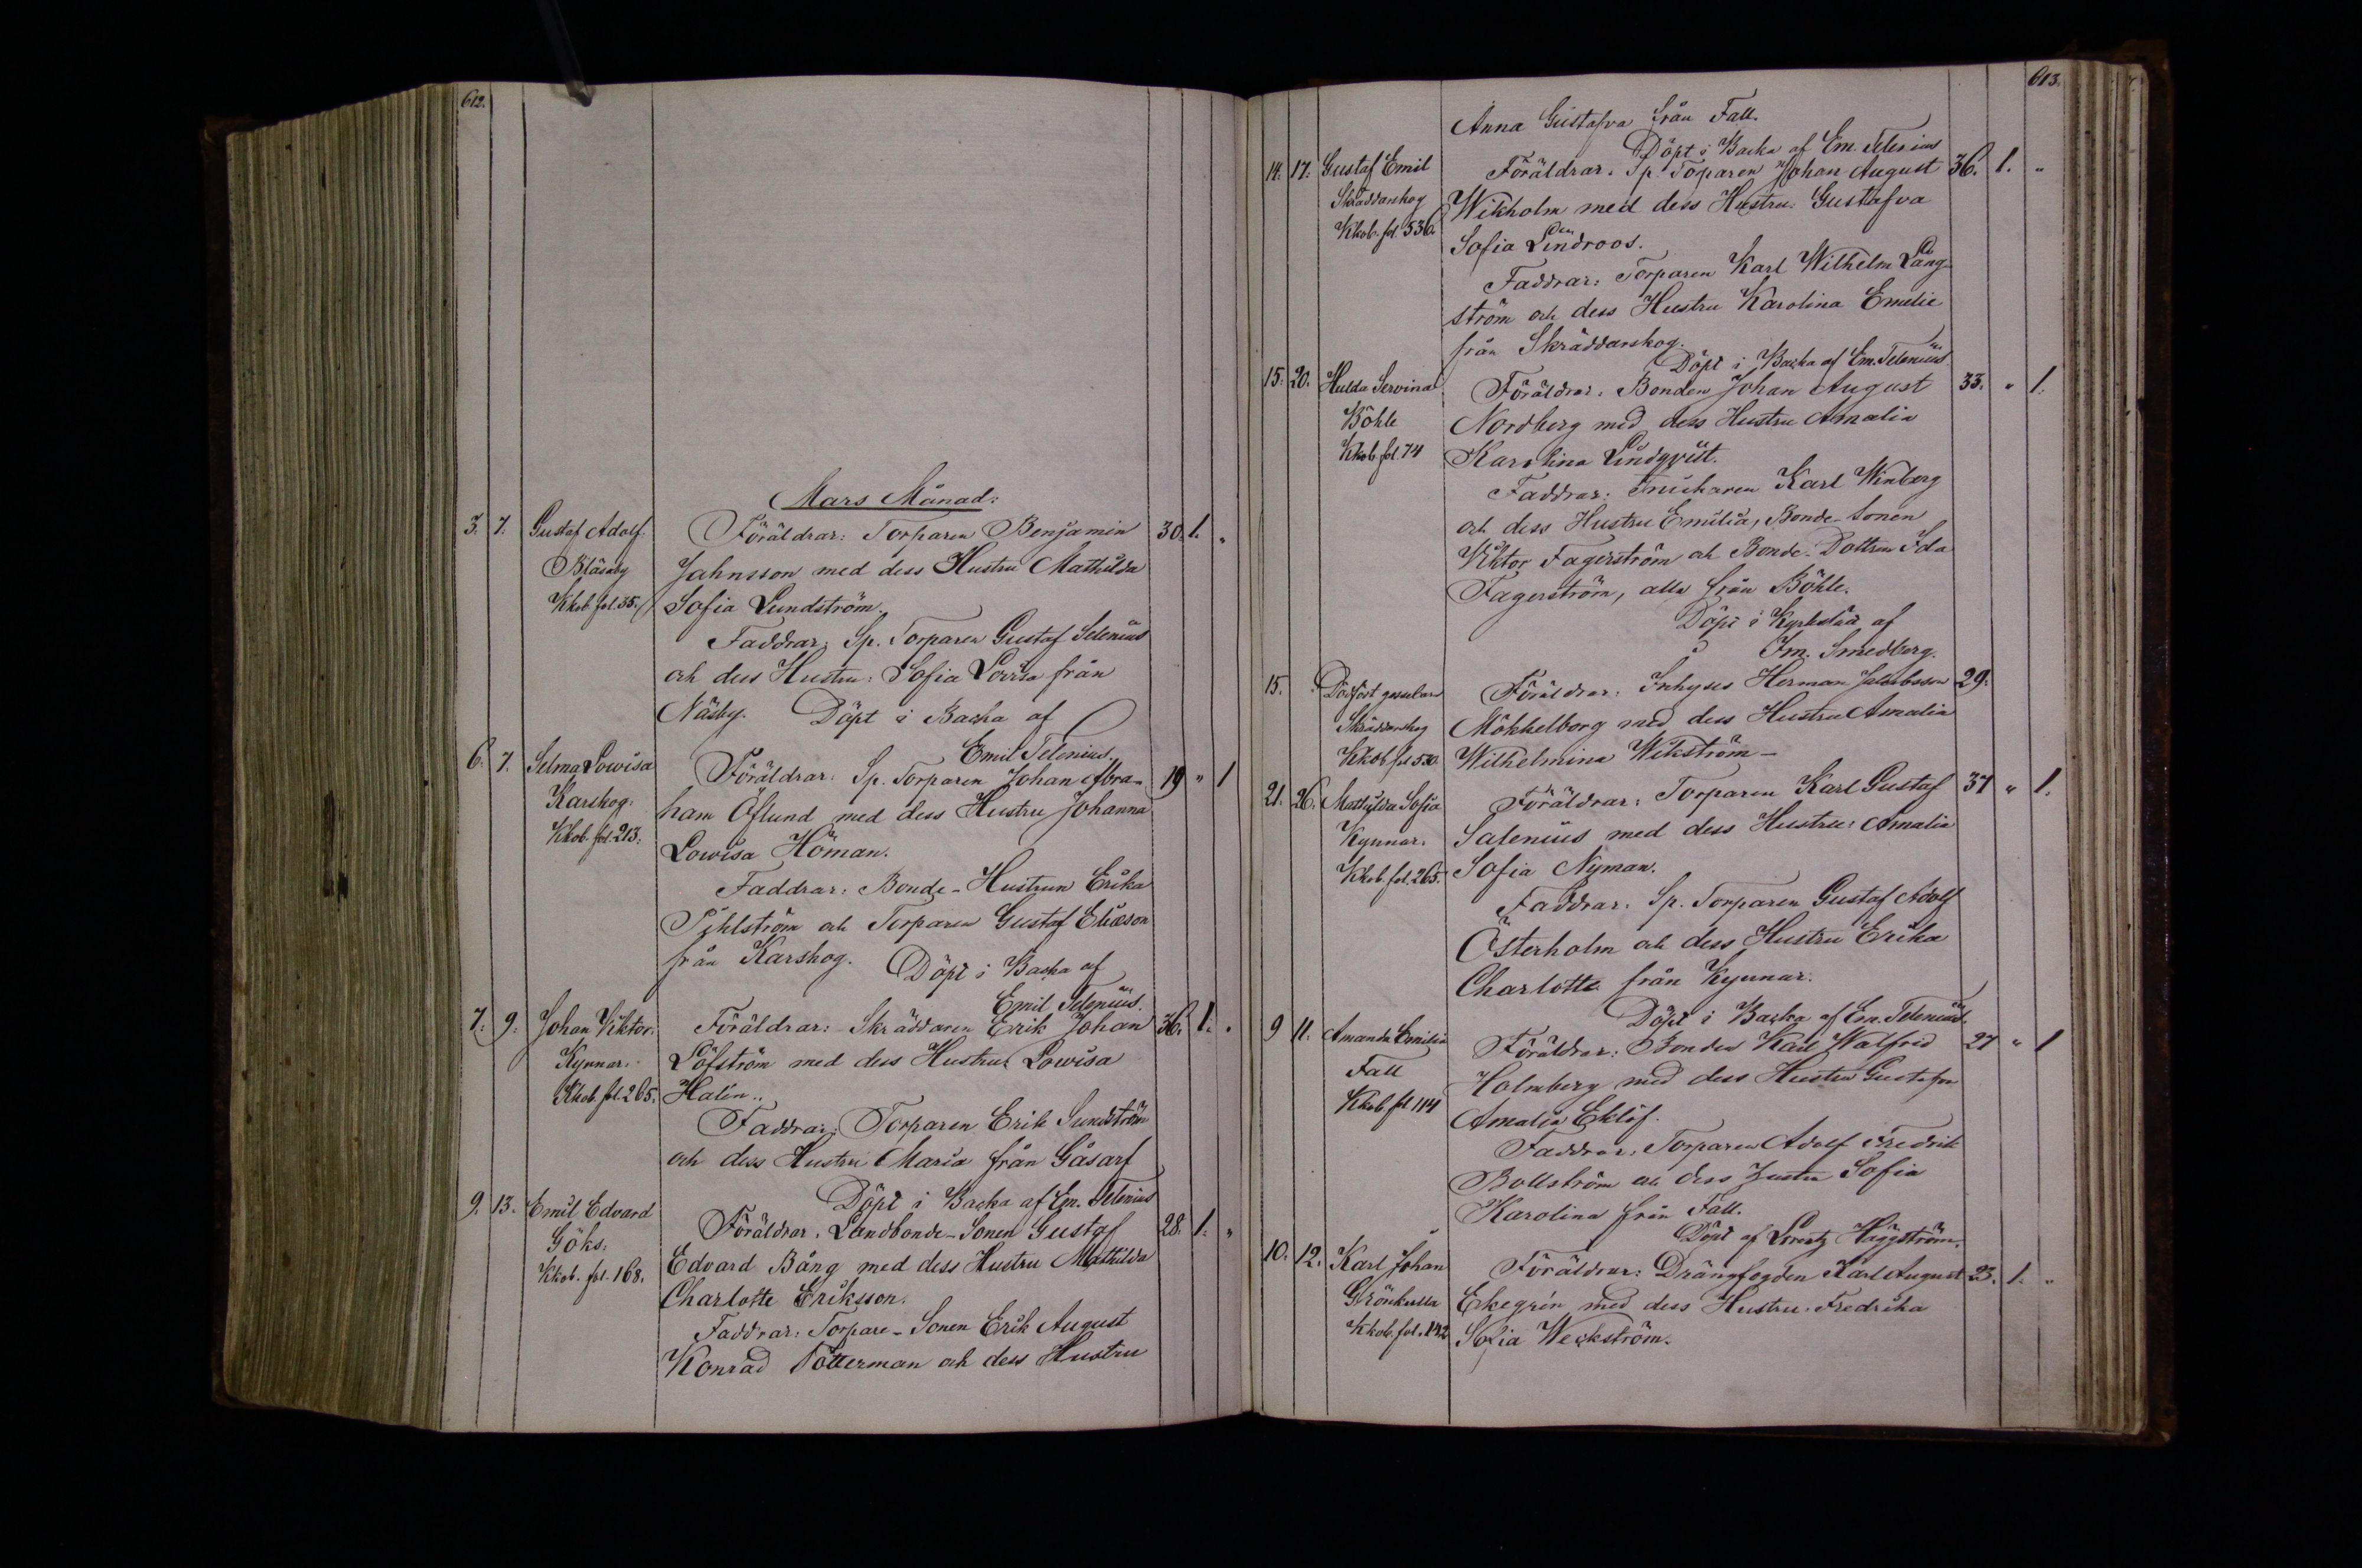 612.
Mars Månad:
3. 7. Gustaf Adolf. Föräldrar: Torparen Benjamin 30. 1. "
Bläsaby Jahnsson med dess Hustru Mathilda
Kkob fol. 35. Sofia Lundström.
Faddrar: Sp. Torparen Gustaf Selenius
och dess Hustru: Sofia Lovisa från
Näsby. Döpt i Backa af
Emil Telenius.
6. 7. Selma Lowisa Föräldrar: Sp. Torparen Johan Abra- 19 " 1
Karskog. ham Öflund med dess Hustru Johanna
Kkob. fol. 213. Lowisa Höman.
Faddrar: Bonde-Hustrun Erika
Pihlström och Torparen Gustaf Eliasson
från Karskog. Döpt i Backa af
Emil Telenius.
7. 9. Johan Viktor. Föräldrar: Skräddaren Erik Johan 36. 1. "
Kynnar. Löfström med dess Hustru Lowisa
Kkob. fol. 265. Halin.
Faddrar: Torparen Erik Sundström
och dess Hustru Maria från Gåsarf
Döpt i Backa af Em. Telenius
9. 13. Emil Edvard Föräldrar: Landbonde-Sonen Gustaf 28. 1. "
Göks. Edvard Bång med dess Hustru Mathilda
Kkob. fol. 168. Charlotte Eriksson.
Faddrar: Torpare-Sonen Erik August
Konrad Pötterman och dess Hustru
613.
Anna Gustafva från Fall.
Döpt i Backa af Em. Telenius
14. 17. Gustaf Emil Föräldrar: Sp. Torparen Johan August 36. 1. "
Skräddarskog Wikholm med dess Hustru: Gustafva
Kkob. fol. 530. Sofia Lindroos.
Faddrar: Torparen Karl Wilhelm Lång-
ström och dess Hustru Karolina Emelie
från Skräddarskog.
Döpt i Backa af Em. Telenius
15. 20. Hulda Servina Föräldrar: Bonden Johan August 33. " 1.
Böhle Nordberg med dess Hustru Amalia
Kkob fol. 74 Karolina Lindqvist.
Faddrar: Snickaren Karl Winberg
och dess Hustru Emilia, Bonde-Sonen
Viktor Fagerström och Bonde-Dottren Ida
Fagerström, alla från Böhle.
Döpt i Kyrkstad af
Im. Smedberg.
15. Dödfödt gossebarn Föräldrar: Inhyses Herman Jakobsson 29.
Skräddarskog Mökkelborg med dess Hustru Amalia
Kkob fol 530. Wilhelmina Wikström –
21. 26. Mathilda Sofia Föräldrar: Torparen Karl Gustaf 37 " 1.
Kynnar. Salenius med dess Hustru: Amalia
Kkob. fol. 265. Sofia Nyman.
Faddrar: Sp. Torparen Gustaf Adolf
Österholm och dess Hustru Erika
Charlotta från Kynnar.
Döpt i Backa af Em. Telenius.
9 11. Amanda Emilia Föräldrar: Bonden Karl Walfrid 27 " 1
Fall Holmberg med dess Hustru Gustafva
Kkob fol 114 Amalia Eklöf.
Faddrar: Torparen Adolf Fredrik
Bollström och dess Hustru Sofia
Karolina från Fall.
Döpt af Lorentz Häggström.
10. 12. Karl Johan Föräldrar: Drängfogden Karl August 23. 1. "
Grönkulla Ekegrén med dess Hustru: Fredrika
Kkob. fol. 142 Sofia Weckström.